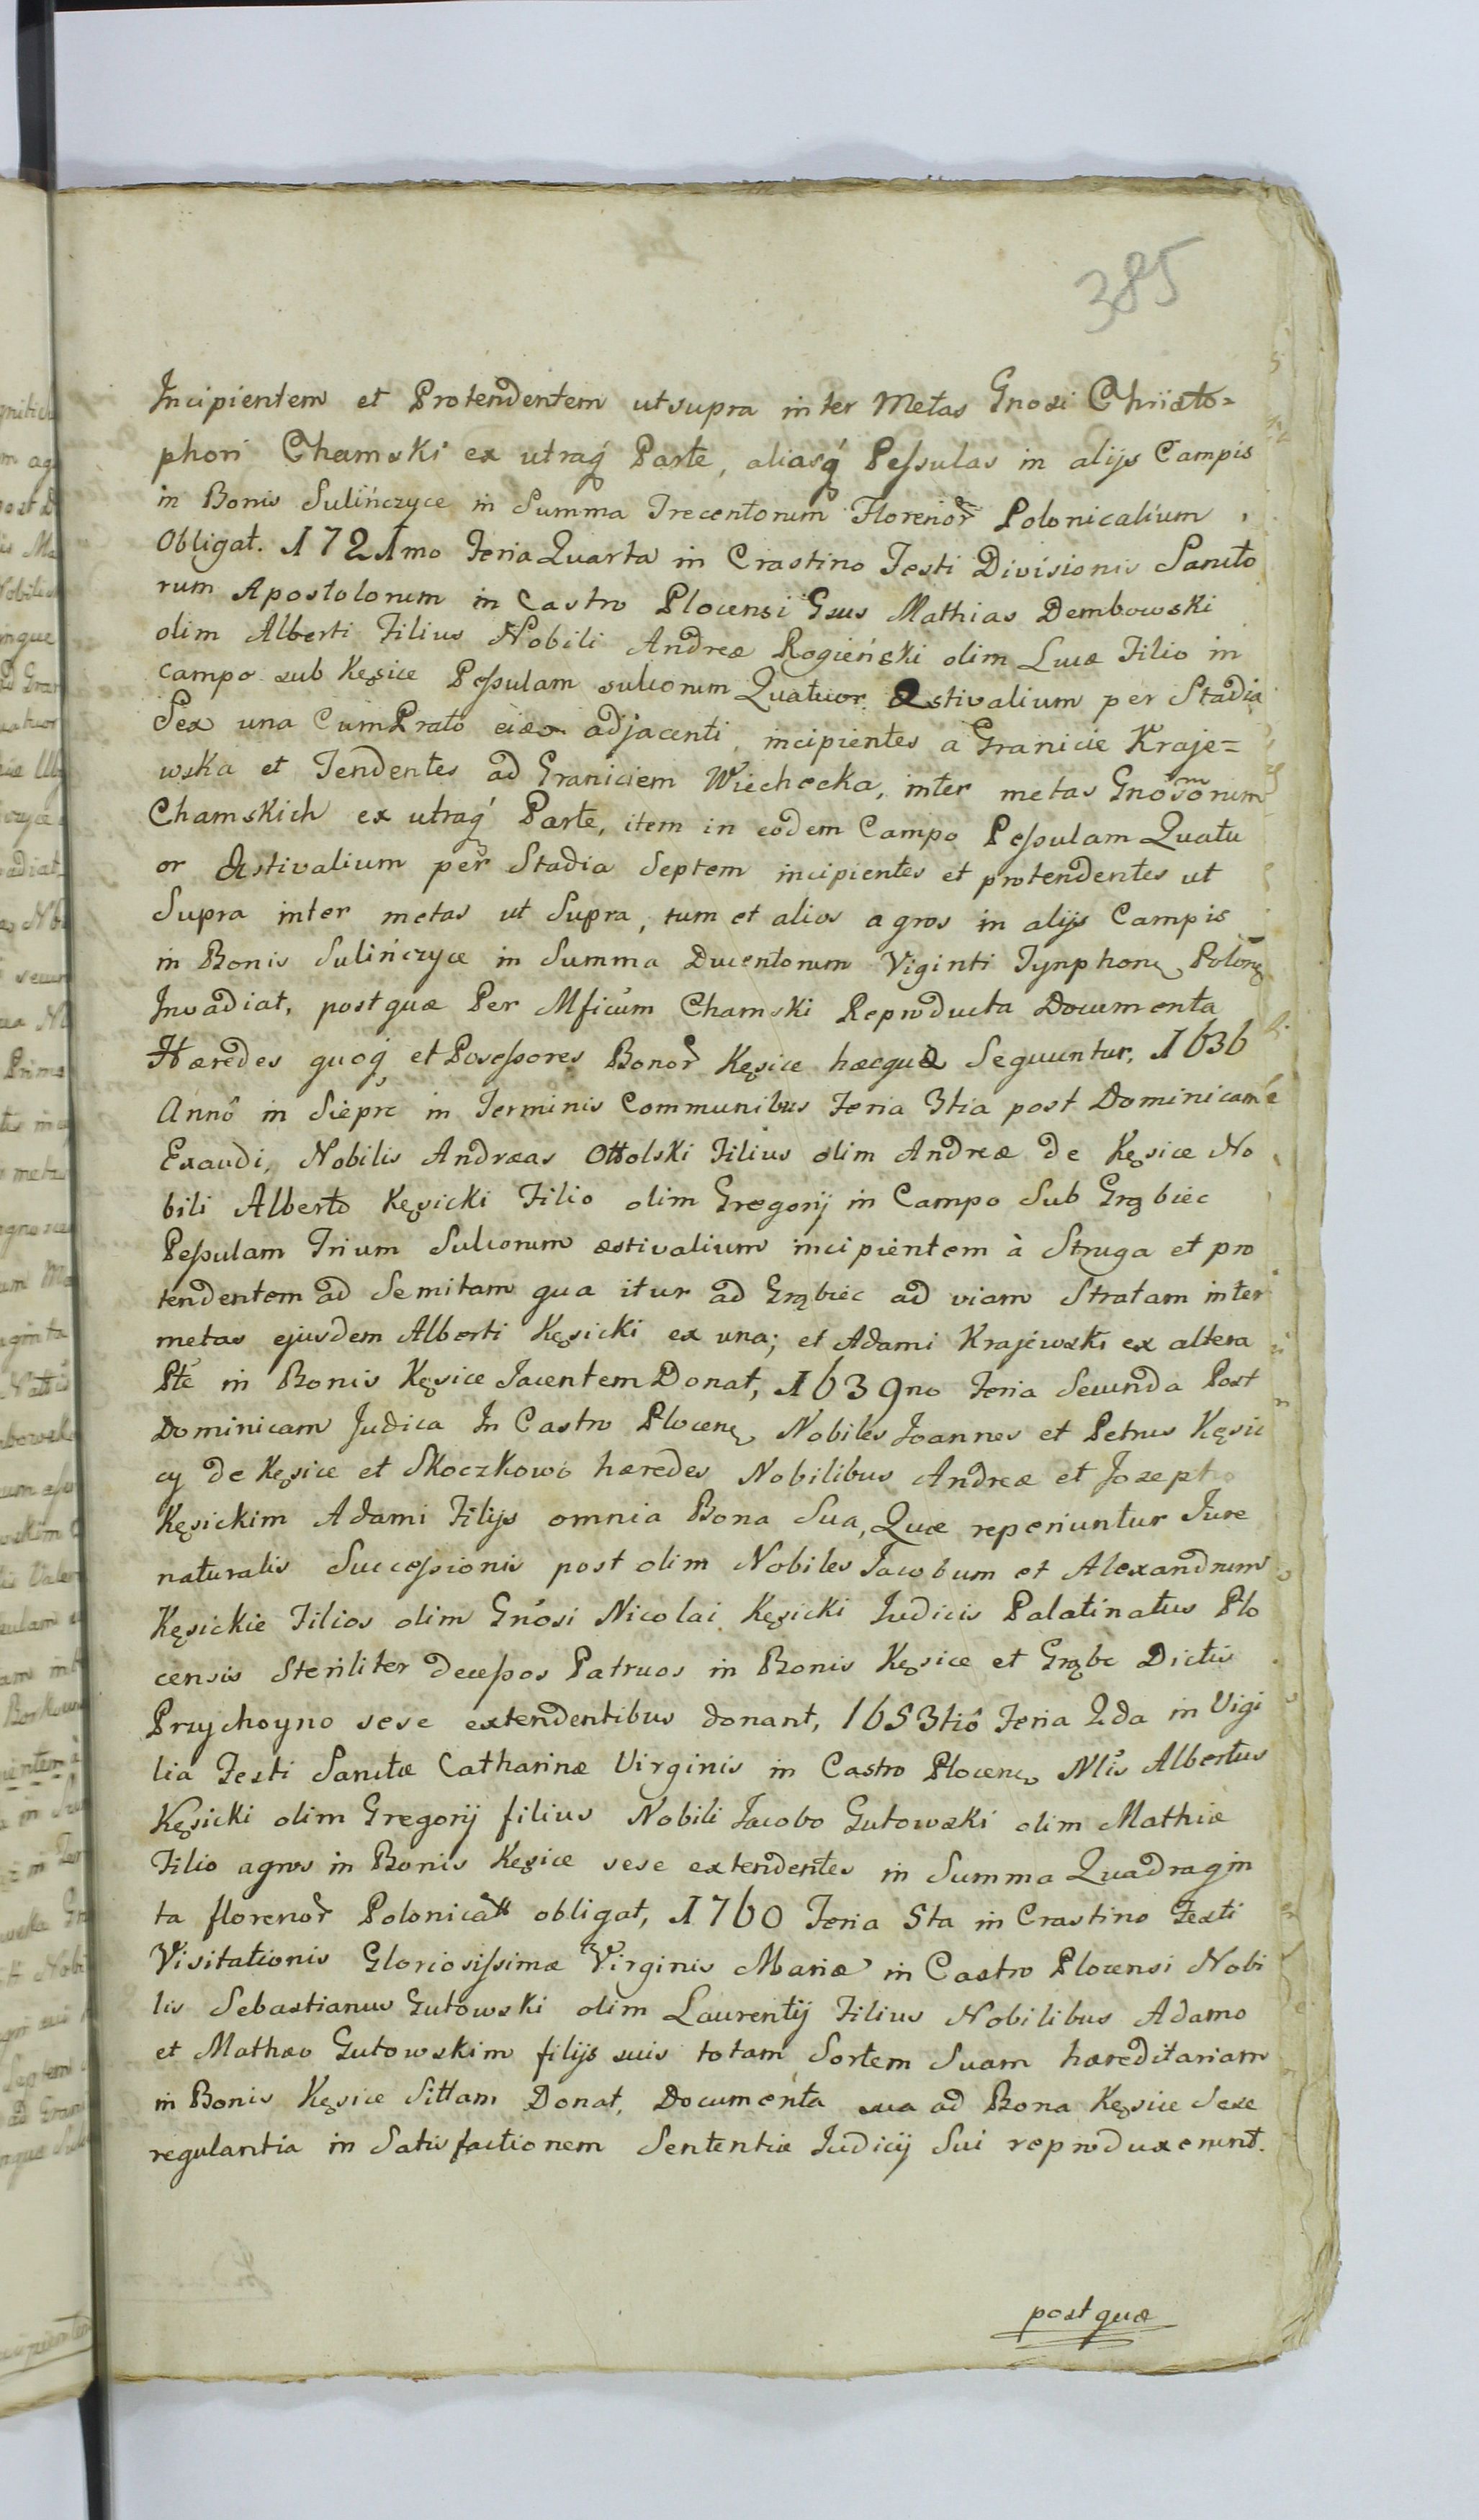 385
Incipientem et Protendentem ut supra inter Metas Gnosi Christo=
phori Chamski ex utraq́ Parte, aliasq́ Peſsulas in alijs Campis
in Bonis Sulińczyce in Summa Trecentorum Florenor̃ Polonicalium,
Obligat. 1721mo Feria Quarta in Crastino Festi Divisionis Sancto
rum Apostolorum in Castro Plocensi Gsus Mathias Dembowski
olim Alberti Filius Nobili Andreæ Rogieński olim Lucæ Filio in
campo sub Kęsice Peſsulam sulcorum Quatuor Æstivalium per Stadia
Sex una Cum Prato adjacenti, incipientes a Granicie Kraje=
wska et Tendentes ad Graniciem Wiechecka, inter metas Gnosorum
Chamskich ex utraq́ Parte, item in eodem Campo Peſsulam Quatu
or Æstivalium per Stadia Septem incipientes et protendentes ut
Supra inter metas ut Supra, tum et alios agros in alijs Campis
in Bonis Sulińczyce in Summa Ducentorum Viginti Tynphonę Polonę
Invadiat, post quæ Per Mficum Chamski Reproducta Documenta
Hæredes quoq́ et Poseſsores Bonor̃ Kęsice hæcquæ Sequuntur, 1636
Annô in Sieprc in Terminis Communibus Feria 3tia post Dominicam
Exaudi, Nobilis Andræas Ottolski Filius olim Andreæ de Kęsice No
bili Alberto Kęsicki Filio olim Gregorij in Campo Sub Grąbiec
Peſsulam Trium Sulcorum æstivalium incipientem à Struga et pro
tendentem ad Semitam qua itur ad Grąbiec ad viam Stratam inter
metas ejusdem Alberti Kęsicki ex una; et Adami Krajewski ex altera
Pte in Bonis Kęsice Jacentem Donat, 1639no Feria Secunda Post
Dominicam Judica In Castro Plocenę Nobiles Joannes et Petrus Kęsic
cy de Kęsice et Skoczkowo hæredes Nobilibus Andreæ et Josepho
Kęsickim Adami Filijs omnia Bona Sua, Quæ reperiuntur Jure
naturalis Succeſsionis post olim Nobiles Jacobum et Alexandrum
Kęsickie Filios olim Gnosi Nicolai Kęsicki Judicis Palatinatus Plo
censis Steriliter deceſsos Patruos in Bonis Kęsice et Grąbc Dictis
Przychoyno sese extendentibus donant, 1653tiô Feria 2da in Vigi
lia Festi Sanctæ Catharinæ Virginis in Castro Plocenę Nlis Albertus
Kęsicki olim Gregorij filius Nobili Jacobo Gutowski olim Mathiæ
Filio agros in Bonis Kęsice sese extendentes in Summa Quadragin
ta florenor̃ Polonical obligat, 1760 Feria 5ta in Crastino Festi
Visitationis Gloriosiſsimæ Virginis Mariæ in Castro Plocensi Nobi
lis Sebastianus Gutowski olim Laurentij Filius Nobilibus Adamo
et Mathæo Gutowskim filijs suis totam Sortem Suam hæreditariam
in Bonis Kęsice Sittam Donat, Documenta sua ad Bona Kęsice Sese
regulantia in Satisfactionem Sententiæ Judicij Sui reproduxerunt.
post quæ